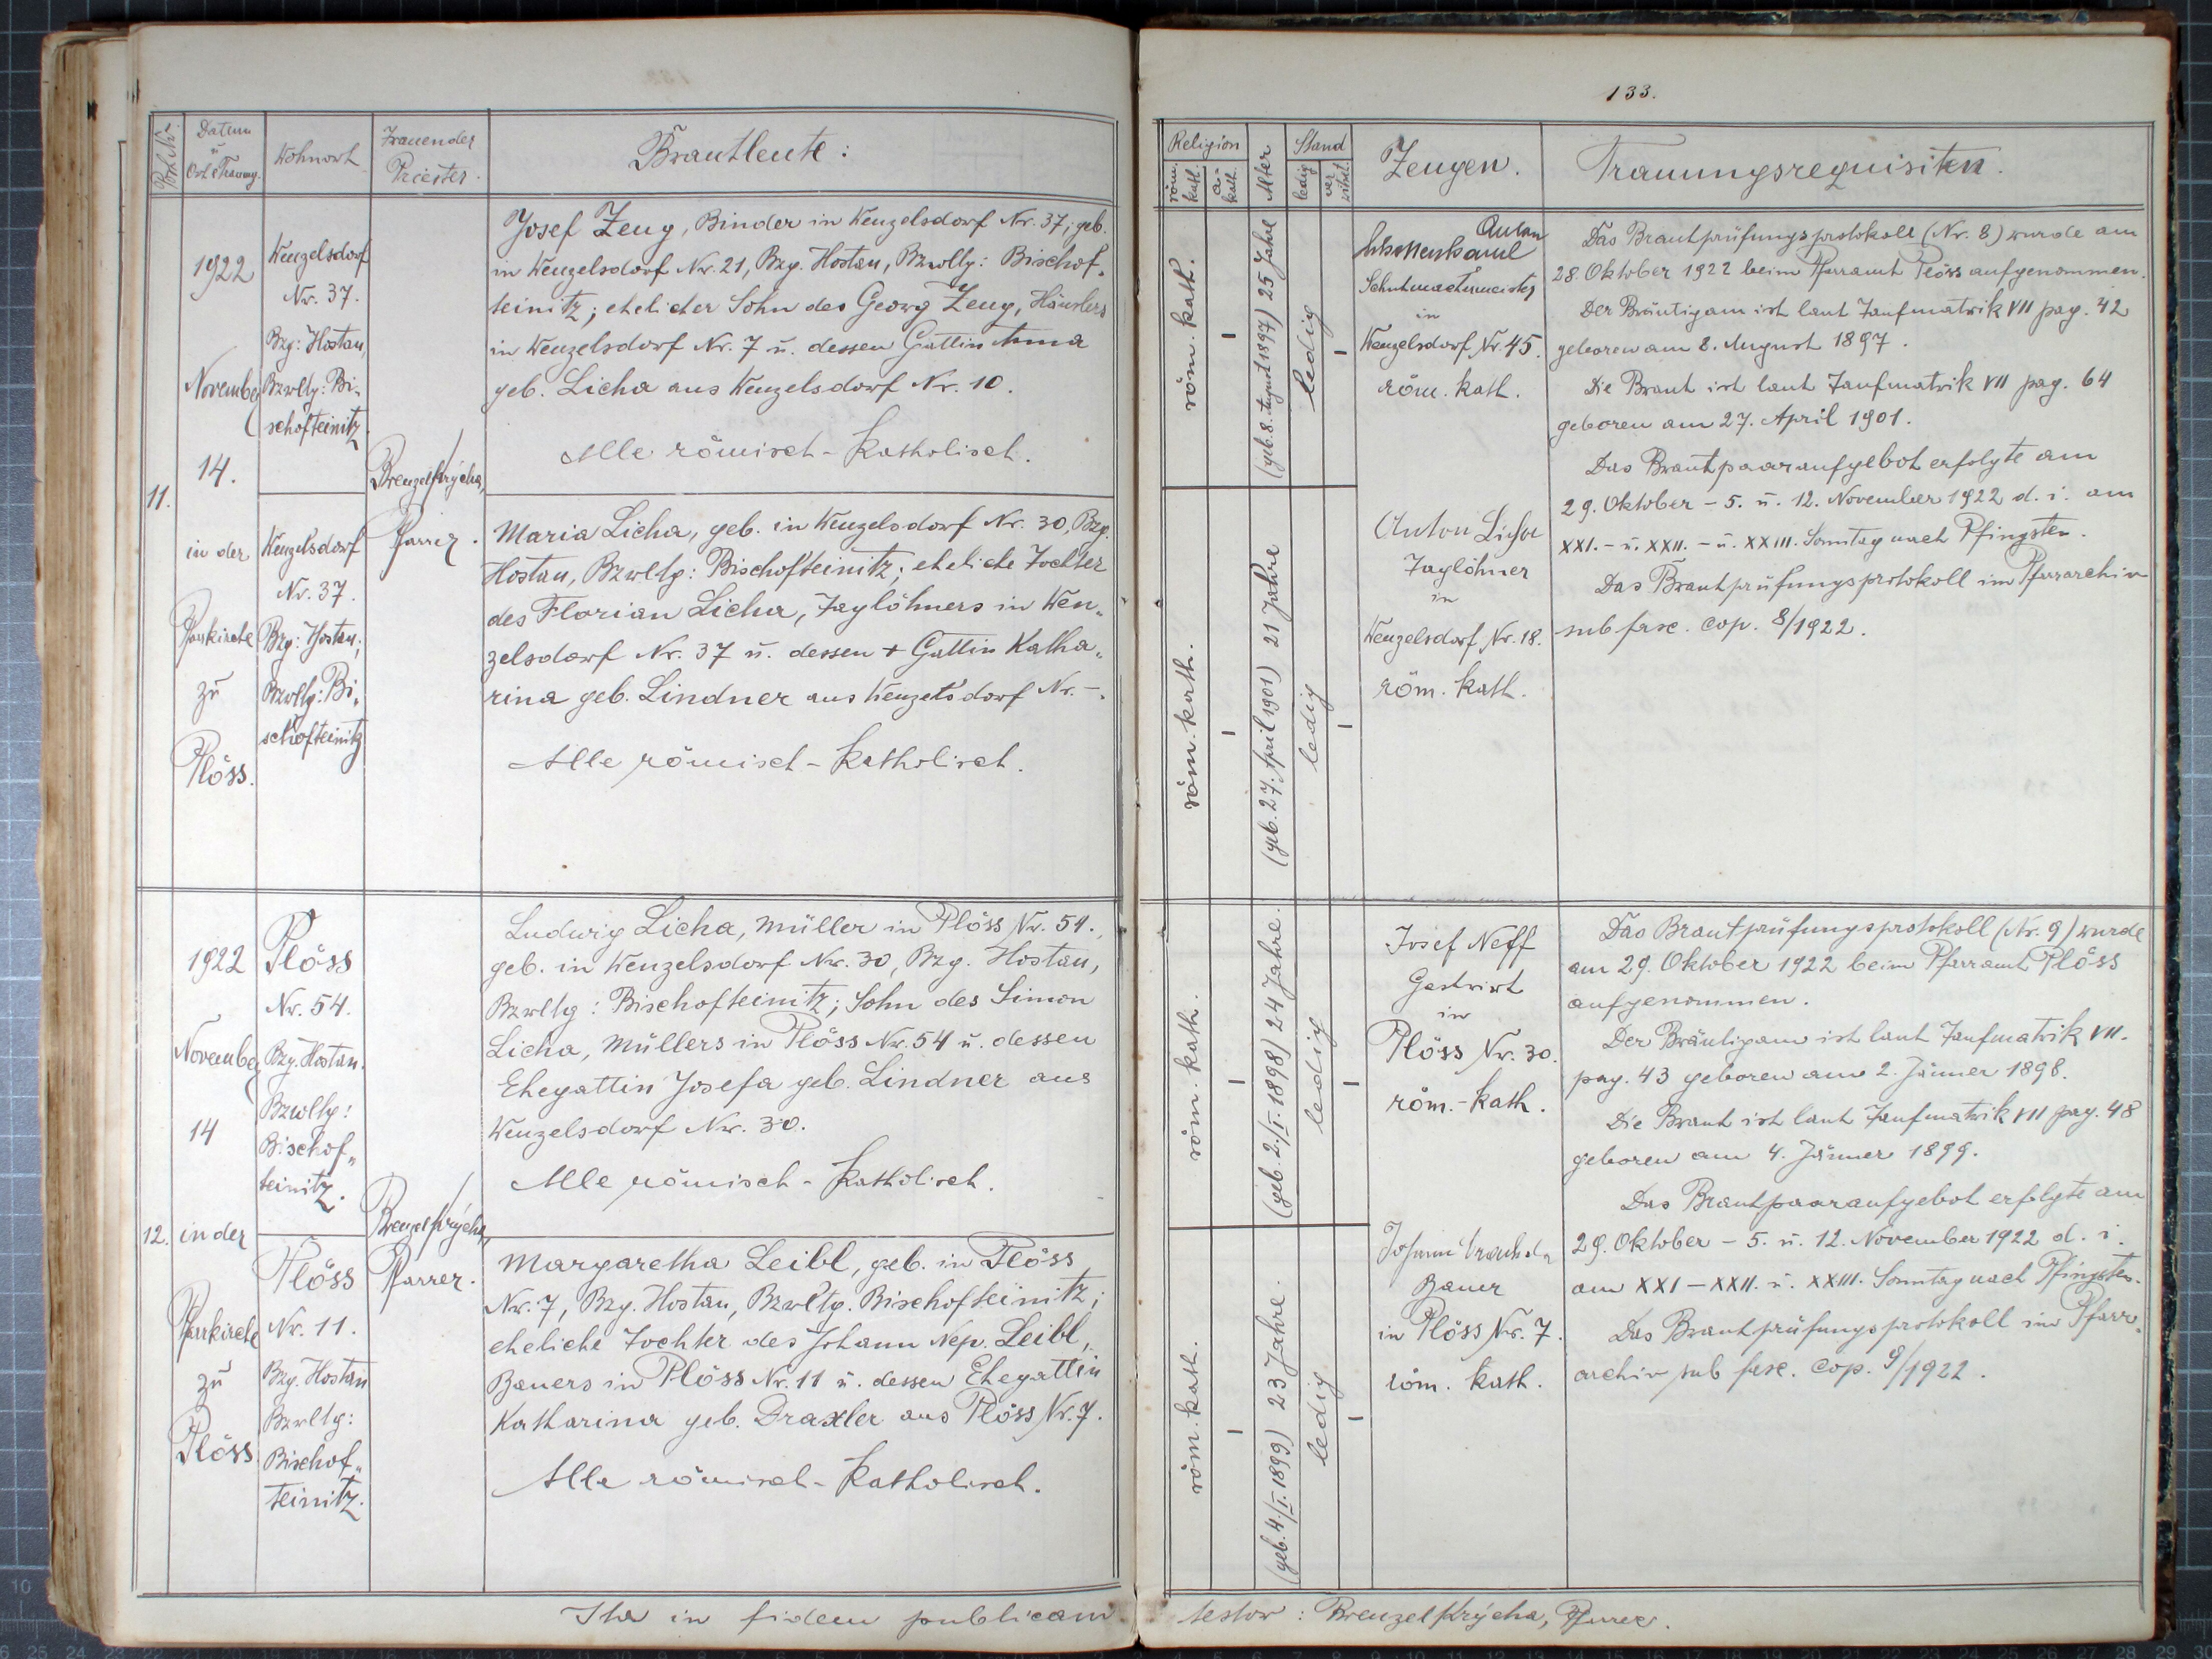 133.
Post Nr.
Datum
u
Ort d. Trauung.
Wohnort
Trauender
Priester.
Brautleute:
Religion
röm. kath.
a-kath.
Alter
Stand
ledig
ver witwt.
Zeugen.
Trauungsrequisiten.
11.
1922
November
14.
in der
Pfarrkirche
zu
Plöss.
Wenzelsdorf
Nr. 37.
Bzg: Hostau,
Bzwltg: Bi-
schofteinitz.
Wenzelsdorf
Nr. 37.
Bzg: Hostau;
Bzwltg: Bi„
schofteinitz
Brenzel Krýcha,
Pfarrer.
Josef Zeug, Binder in Wenzelsdorf Nr. 37; geb.
in Wenzelsdorf Nr. 21, Bzg. Hostau, Bzwltg: Bischof„
teinitz; ehelicher Sohn des Georg Zeug, Häuslers
in Wenzelsdorf Nr. 7 u. dessen Gattin Anna
geb. Licha aus Wenzelsdorf Nr. 10.
Alle römisch-katholisch.
Maria Licha, geb. in Wenzelsdorf Nr. 30, Bzg.
Hostau, Bzwltg: Bischofteinitz; eheliche Tochter
des Florian Licha, Taglöhners in Wen„
zelsdorf Nr. 37 u. dessen + Gattin Katha„
rina geb. Lindner aus Wenzelsdorf Nr. -.
Alle römisch-katholisch.
röm. kath.
–
(geb. 8. August 1897) 25 Jahre
ledig
–
röm. kath.
–
(geb. 27. April 1901) 21 Jahre
ledig
–
Anton
in
Wenzelsdorf Nr. 45.
röm. kath.
Anton Licha
Taglöhner
in
Wenzelsdorf Nr. 18.
röm. kath.
Das Brautprüfungsprotokoll (Nr. 8) wurde am
28. Oktober 1922 beim Pfarramt Plöss aufgenommen.
Der Bräutigam ist laut Taufmatrik VII pag. 42
geboren am 8. August 1897.
Die Braut ist laut Taufmatrik VII pag. 64
geboren am 27. April 1901.
Das Brautpaaraufgebot erfolgte am
29. Oktober - 5. u. 12. November 1922 d. i. am
XXI. - u. XXII. - u. XXIII. Sonntag nach Pfingsten.
Das Brautprüfungsprotokoll im Pfarrarchiv
sub fasc. cop. 8/1922.
12.
1922
November
14
in der
Pfarrkirche
zu
Plöss.
Plöss
Nr. 54.
Bzg. Hostau.
Bzwltg:
Bischof„
teinitz.
Plöss
Nr. 11.
Bzg. Hostau
Bzwltg:
Bischof„
teinitz.
Brenzel Krýcha,
Pfarrer.
Ludwig Licha, Müller in Plöss Nr. 54.,
geb. in Wenzelsdorf Nr. 30, Bzg. Hostau,
Bzwltg: Bischofteinitz; Sohn des Simon
Licha, Müllers in Plöss Nr. 54 u. dessen
Ehegattin Josefa geb. Lindner aus
Wenzelsdorf Nr. 30.
Alle römisch-katholisch.
Margaretha Leibl, geb. in Plöss
Nr. 7, Bzg. Hostau, Bzwltg. Bischofteinitz;
eheliche Tochter des Johann Nep. Leibl,
Bauers in Plöss Nr. 11 u. dessen Ehegattin
Katharina geb. Draxler aus Plöss Nr. 7.
Alle römisch-katholisch.
röm. kath.
–
(geb. 2./I. 1898) 24 Jahre.
ledig
–
röm. kath.
–
(geb. 4./I. 1899) 23 Jahre.
ledig
–
Josef Neff
Gastwirt
in
Plöss Nr. 30.
röm.-kath.
Johann
Bauer
in Plöss Nr. 7.
röm. kath.
Das Brautprüfungsprotokoll (Nr. 9) wurde
am 29. Oktober 1922 beim Pfarramt Plöss
aufgenommen.
Der Bräutigam ist laut Taufmatrik VII.
pag. 43 geboren am 2. Jänner 1898.
Die Braut ist laut Taufmatrik VII pag. 48
geboren am 4. Jänner 1899.
Das Brautpaaraufgebot erfolgte am
29. Oktober - 5. u. 12. November 1922 d. i.
am XXI - XXII. u. XXIII. Sonntag nach Pfingsten.
Das Brautprüfungsprotokoll im Pfarr„
archiv sub fasc. cop. 9/1922.
Ita in fidem publicam testor: Brenzel Krýcha, Pfarrer.